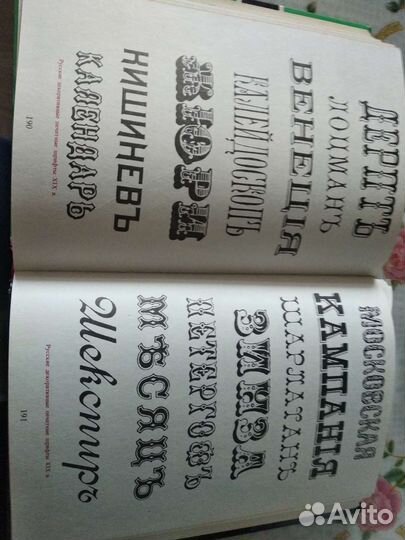 ДЕРПТЪ
ЛОЦМАНЪ
ВЕНЕЦІЯ
КАЛЕЙДОСКОПЪ
ЖЮРИ
КИШИНЕВЪ
КАЛЕНДАРЬ
Русские декоративные печатные шрифты XIX в.
190
МОСКОВСКАЯ
КАМПАНІЯ
ШАРЛАТАНЪ
ПЕТЕРГОФЪ
МѢСЯЦЪ
Шекспиръ
Русские декоративные печатные шрифты XIX в.
191
Avito